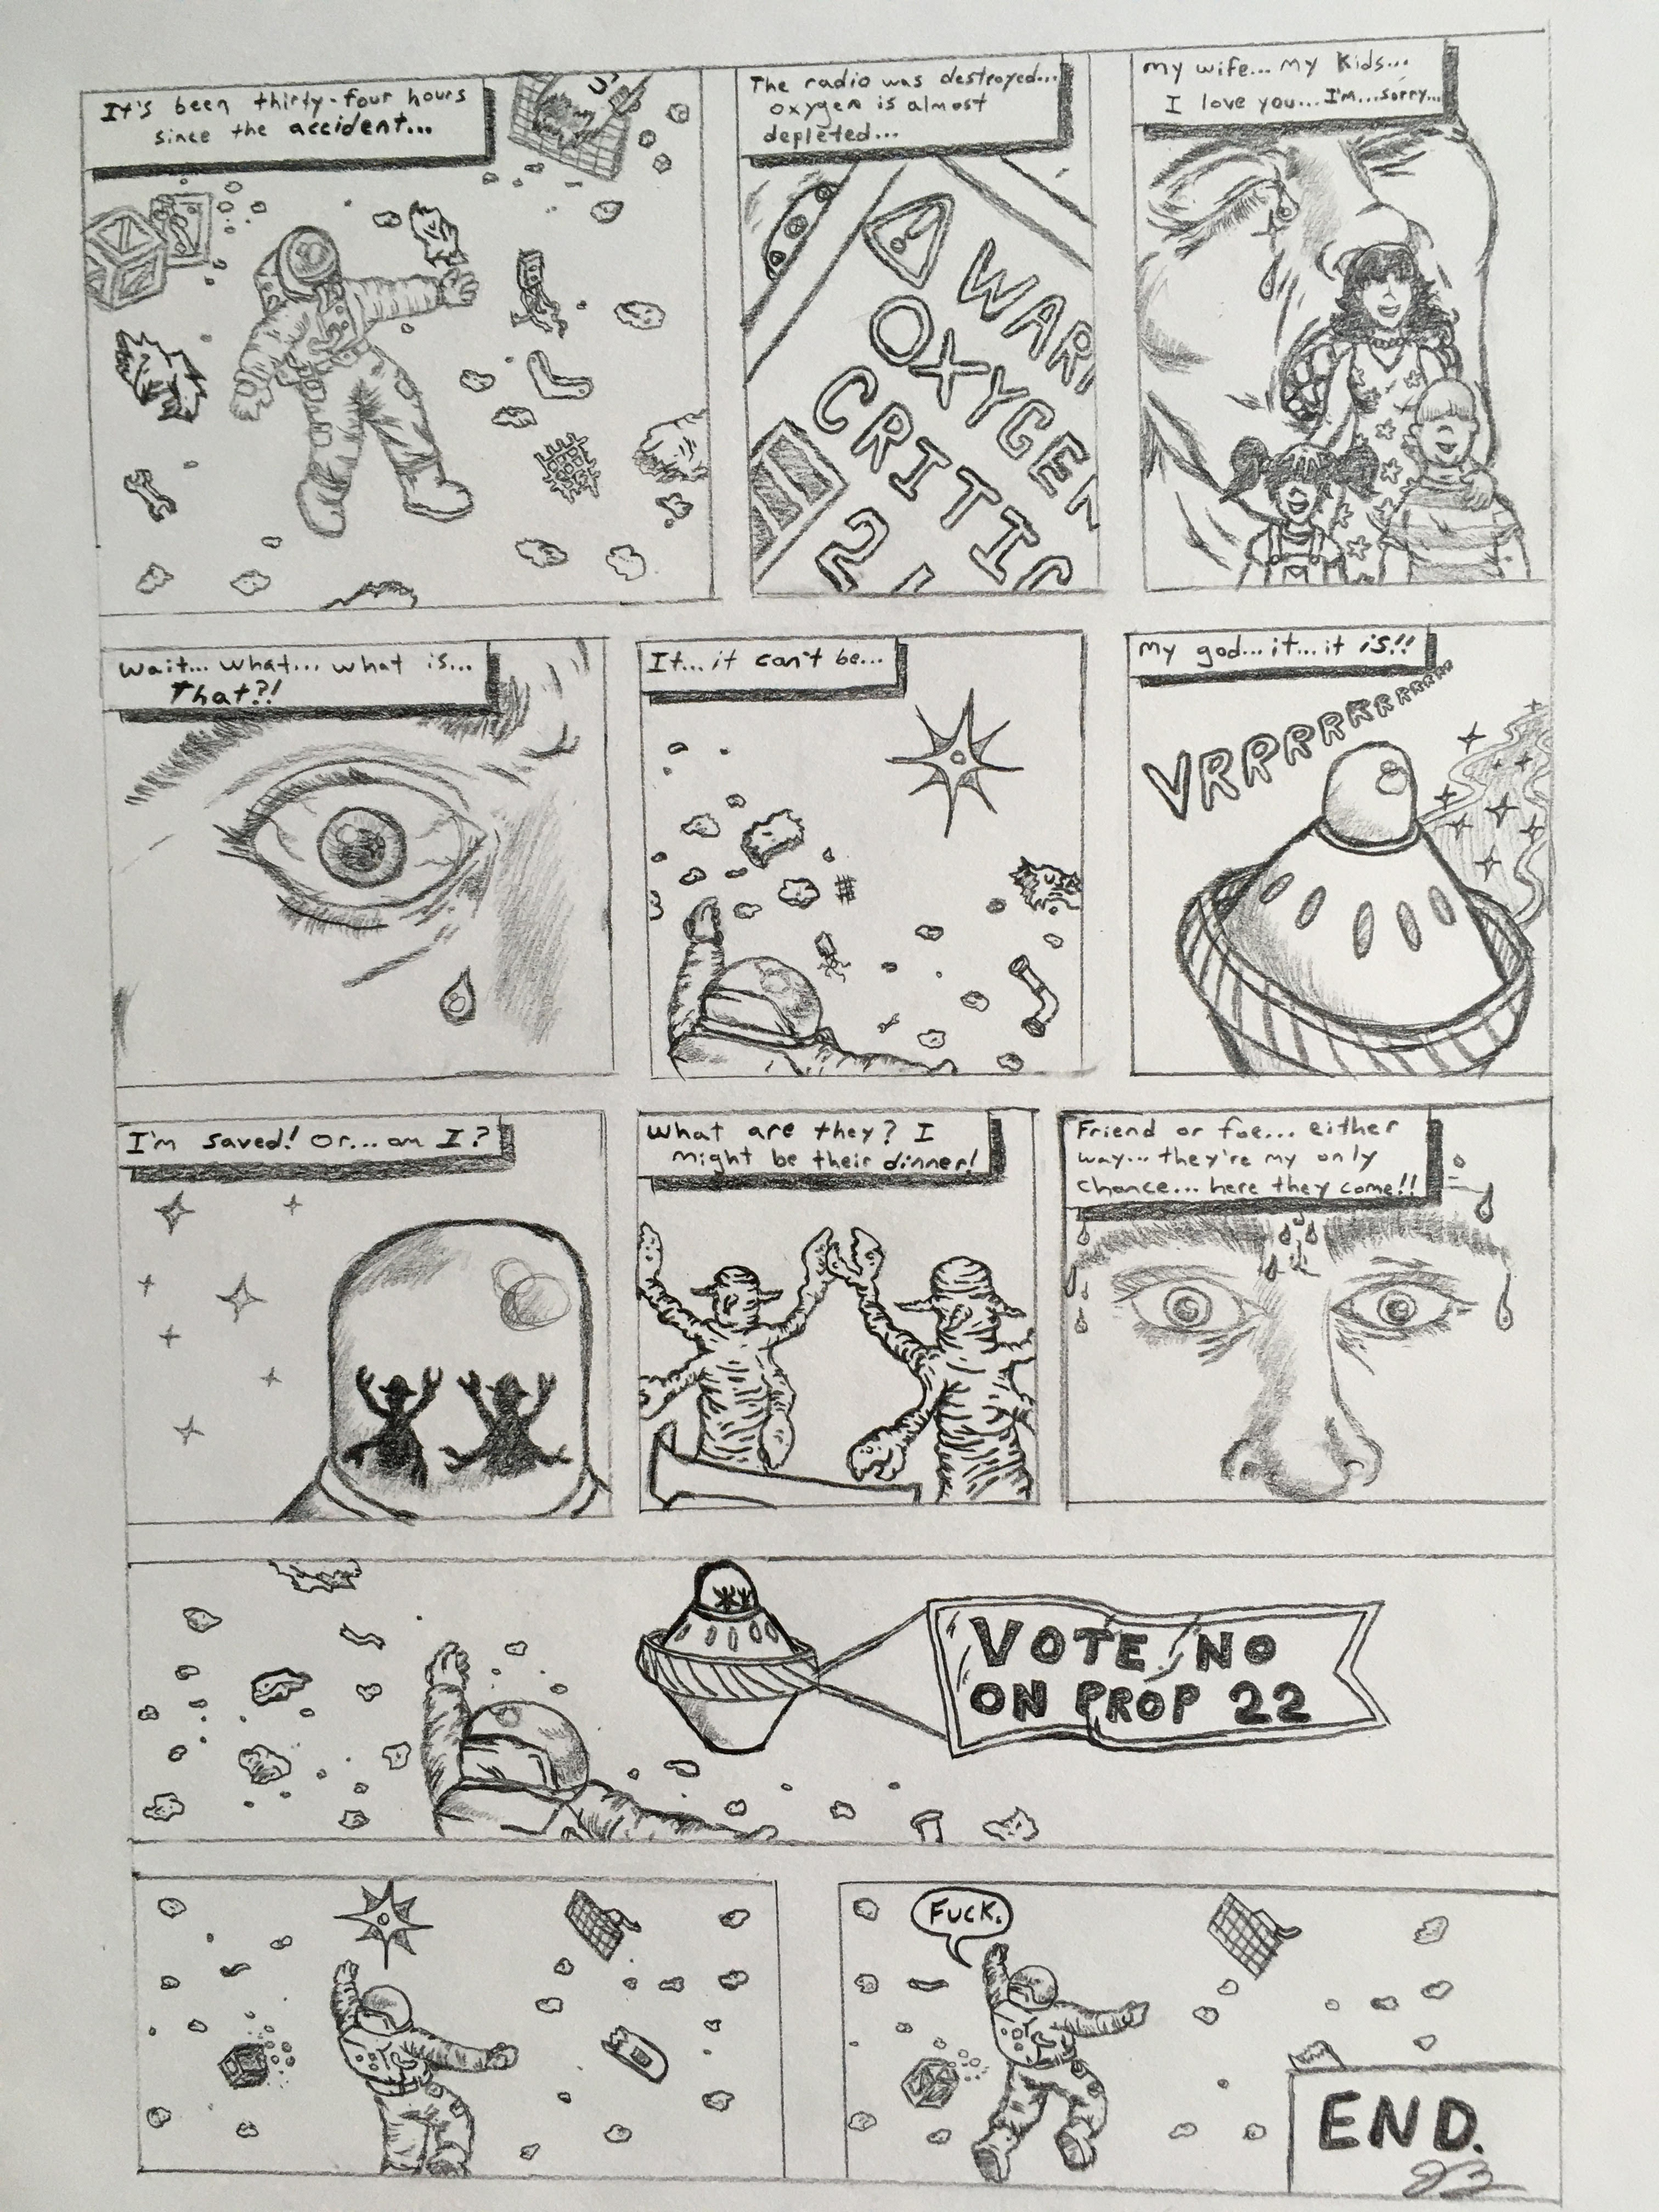 It's been thirty-four hours
since the accident...
The radio was destroyed...
oxygen is almost
depleted...
WAR
OXYGEN
CRITIC
2
My wife... My Kids...
I love you... I'm...sorry...
Wait... what... what is...
That?!
It... it can't be...
My god...it...it is!!
VRRRRRRRRRRRR
I'm saved! Or... am I?
What are they? I
might be their dinner!
Friend or foe... either
way... they're my only
chance... here they come!!
VOTE NO
ON PROP 22
FUCK.
END.